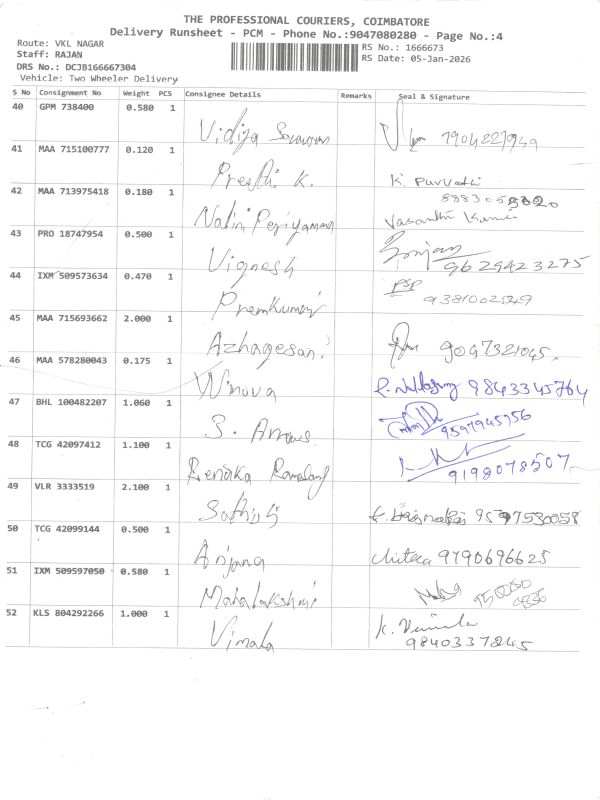 THE PROFESSIONAL COURIERS, COIMBATORE
Delivery Runsheet - PCM - Phone No.:9047080280 - Page No.:4
Route: VKL NAGAR
Staff: RAJAN
DRS No.: DCJB166667304
Vehicle: Two Wheeler Delivery
RS No.: 1666673
RS Date: 05-Jan-2026
S No Consignment No Weight PCS Consignee Details Remarks Seal & Signature
40 GPM 738400 0.580 1 Vidija 7904227949
41 MAA 715100777 0.120 1 Preethi K. K. Purvathi
42 MAA 713975418 0.180 1 Nalini Periyamma Vasanthi Kumari
43 PRO 18747954 0.500 1 Vignesh 9629423275
44 IXM 509573634 0.470 1 Premkumar PSP 9381002549
45 MAA 715693662 2.000 1 Azhagesan. 9047321045.
46 MAA 578280043 0.175 1 Winova 9843345764
47 BHL 100482207 1.060 1 S. 9597945956
48 TCG 42097412 1.100 1 Renuka 9198078507
49 VLR 3333519 2.100 1
50 TCG 42099144 0.500 1 Anjana Chitra 9790696625
51 IXM 509597050 0.580 1 Mahalakshmi
52 KLS 804292266 1.000 1 Vimala K. Vimala 9840337245